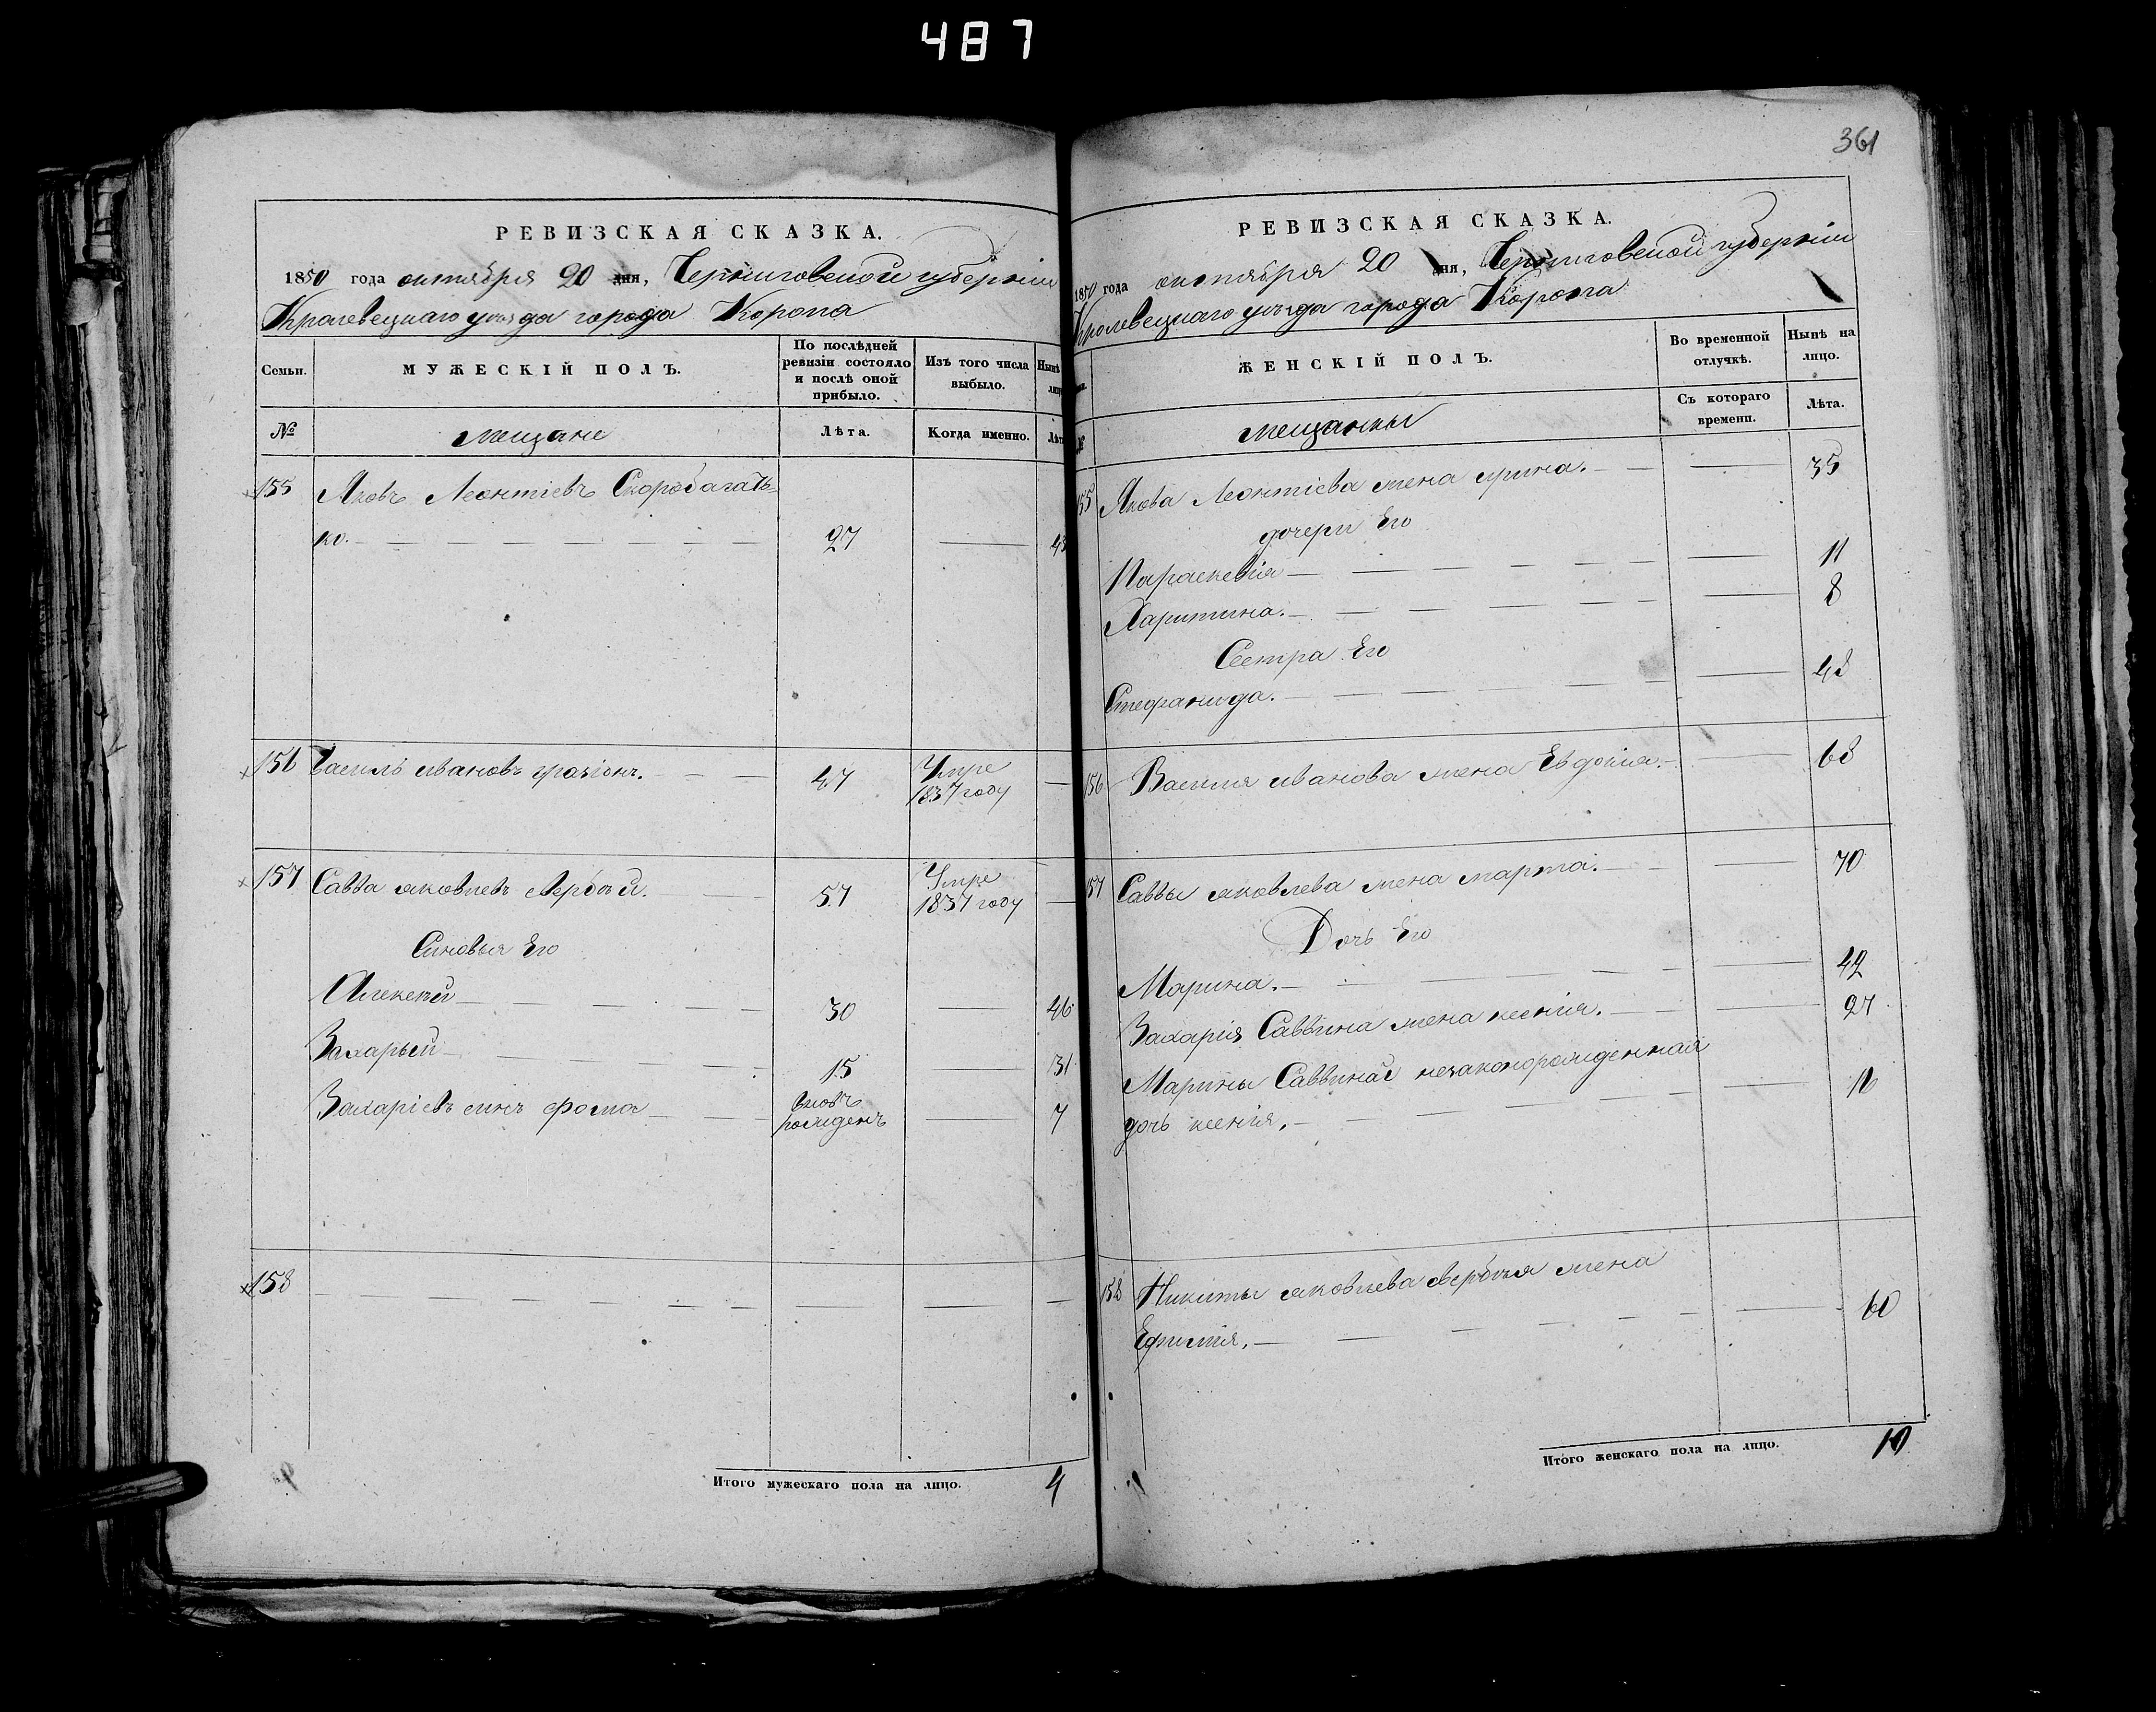 487
361
РЕВИЗСКАЯ СКАЗКА.
1850 года октября 20 дня, Черниговской губерніи
Кролевецкаго уѣзда города Коропа
Семьи.
МУЖЕСКІЙ ПОЛЪ.
По послѣдней ревизіи состояло и послѣ оной прибыло.
Изъ того числа выбыло.
Нынѣ
лицо
№
мещане
Лѣта.
Когда именно.
Лѣта
155 Яковъ Леонтіевъ Скоробагать
ко. 27 43
156 Василь ивановъ 47 Умре
1837 году
157 Савва яковлевъ Вербѣй. 57 Умре
1837 году
Синовья Его
Алексѣй 30 46
Захарьей 15 31
Захаріевъ синъ фома вновь рожденъ 7
158
Итого мужескаго пола на лицо. 4
РЕВИЗСКАЯ СКАЗКА.
1850 года октября 20 дня, Черниговской губерніи
Кролевецкаго уѣзда города Коропа
ЖЕНСКІЙ ПОЛЪ.
Во временной отлучкѣ.
Нынѣ на лицо.
№
мещанки
Съ котораго времени.
Лѣта.
155 Якова Леонтіева жена ирина. 35
дочери Его
Параскевія 11
Харитина. 8
Сестра Его
Стефанида. 48
156 Василя иванова жена Евдокія. 68
157 Саввы яковлева жена марта. 70
Дочь Его
Марина. 42
Захарія Саввина жена ксенія. 27
Марины Саввиной незаконорожденная
дочь ксенія.
158 Никиты яковлева Вербѣя жена
Ефимія. 60
Итого женскаго пола на лицо. 10